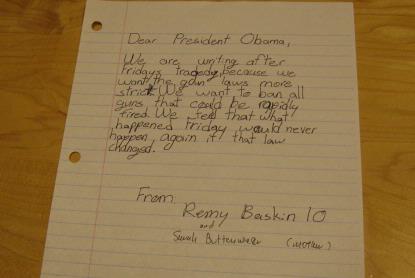 Dear President Obama,
We are writing after
Fridays tradedy, because we
want the gun laws more
strict. We want to ban all
guns that could be rapidly
fired. We feel that what
happened Friday would never
happen again if that law
changed.
From,
Remy Baskin 10
and
Sarah Buttenwieser (mother)